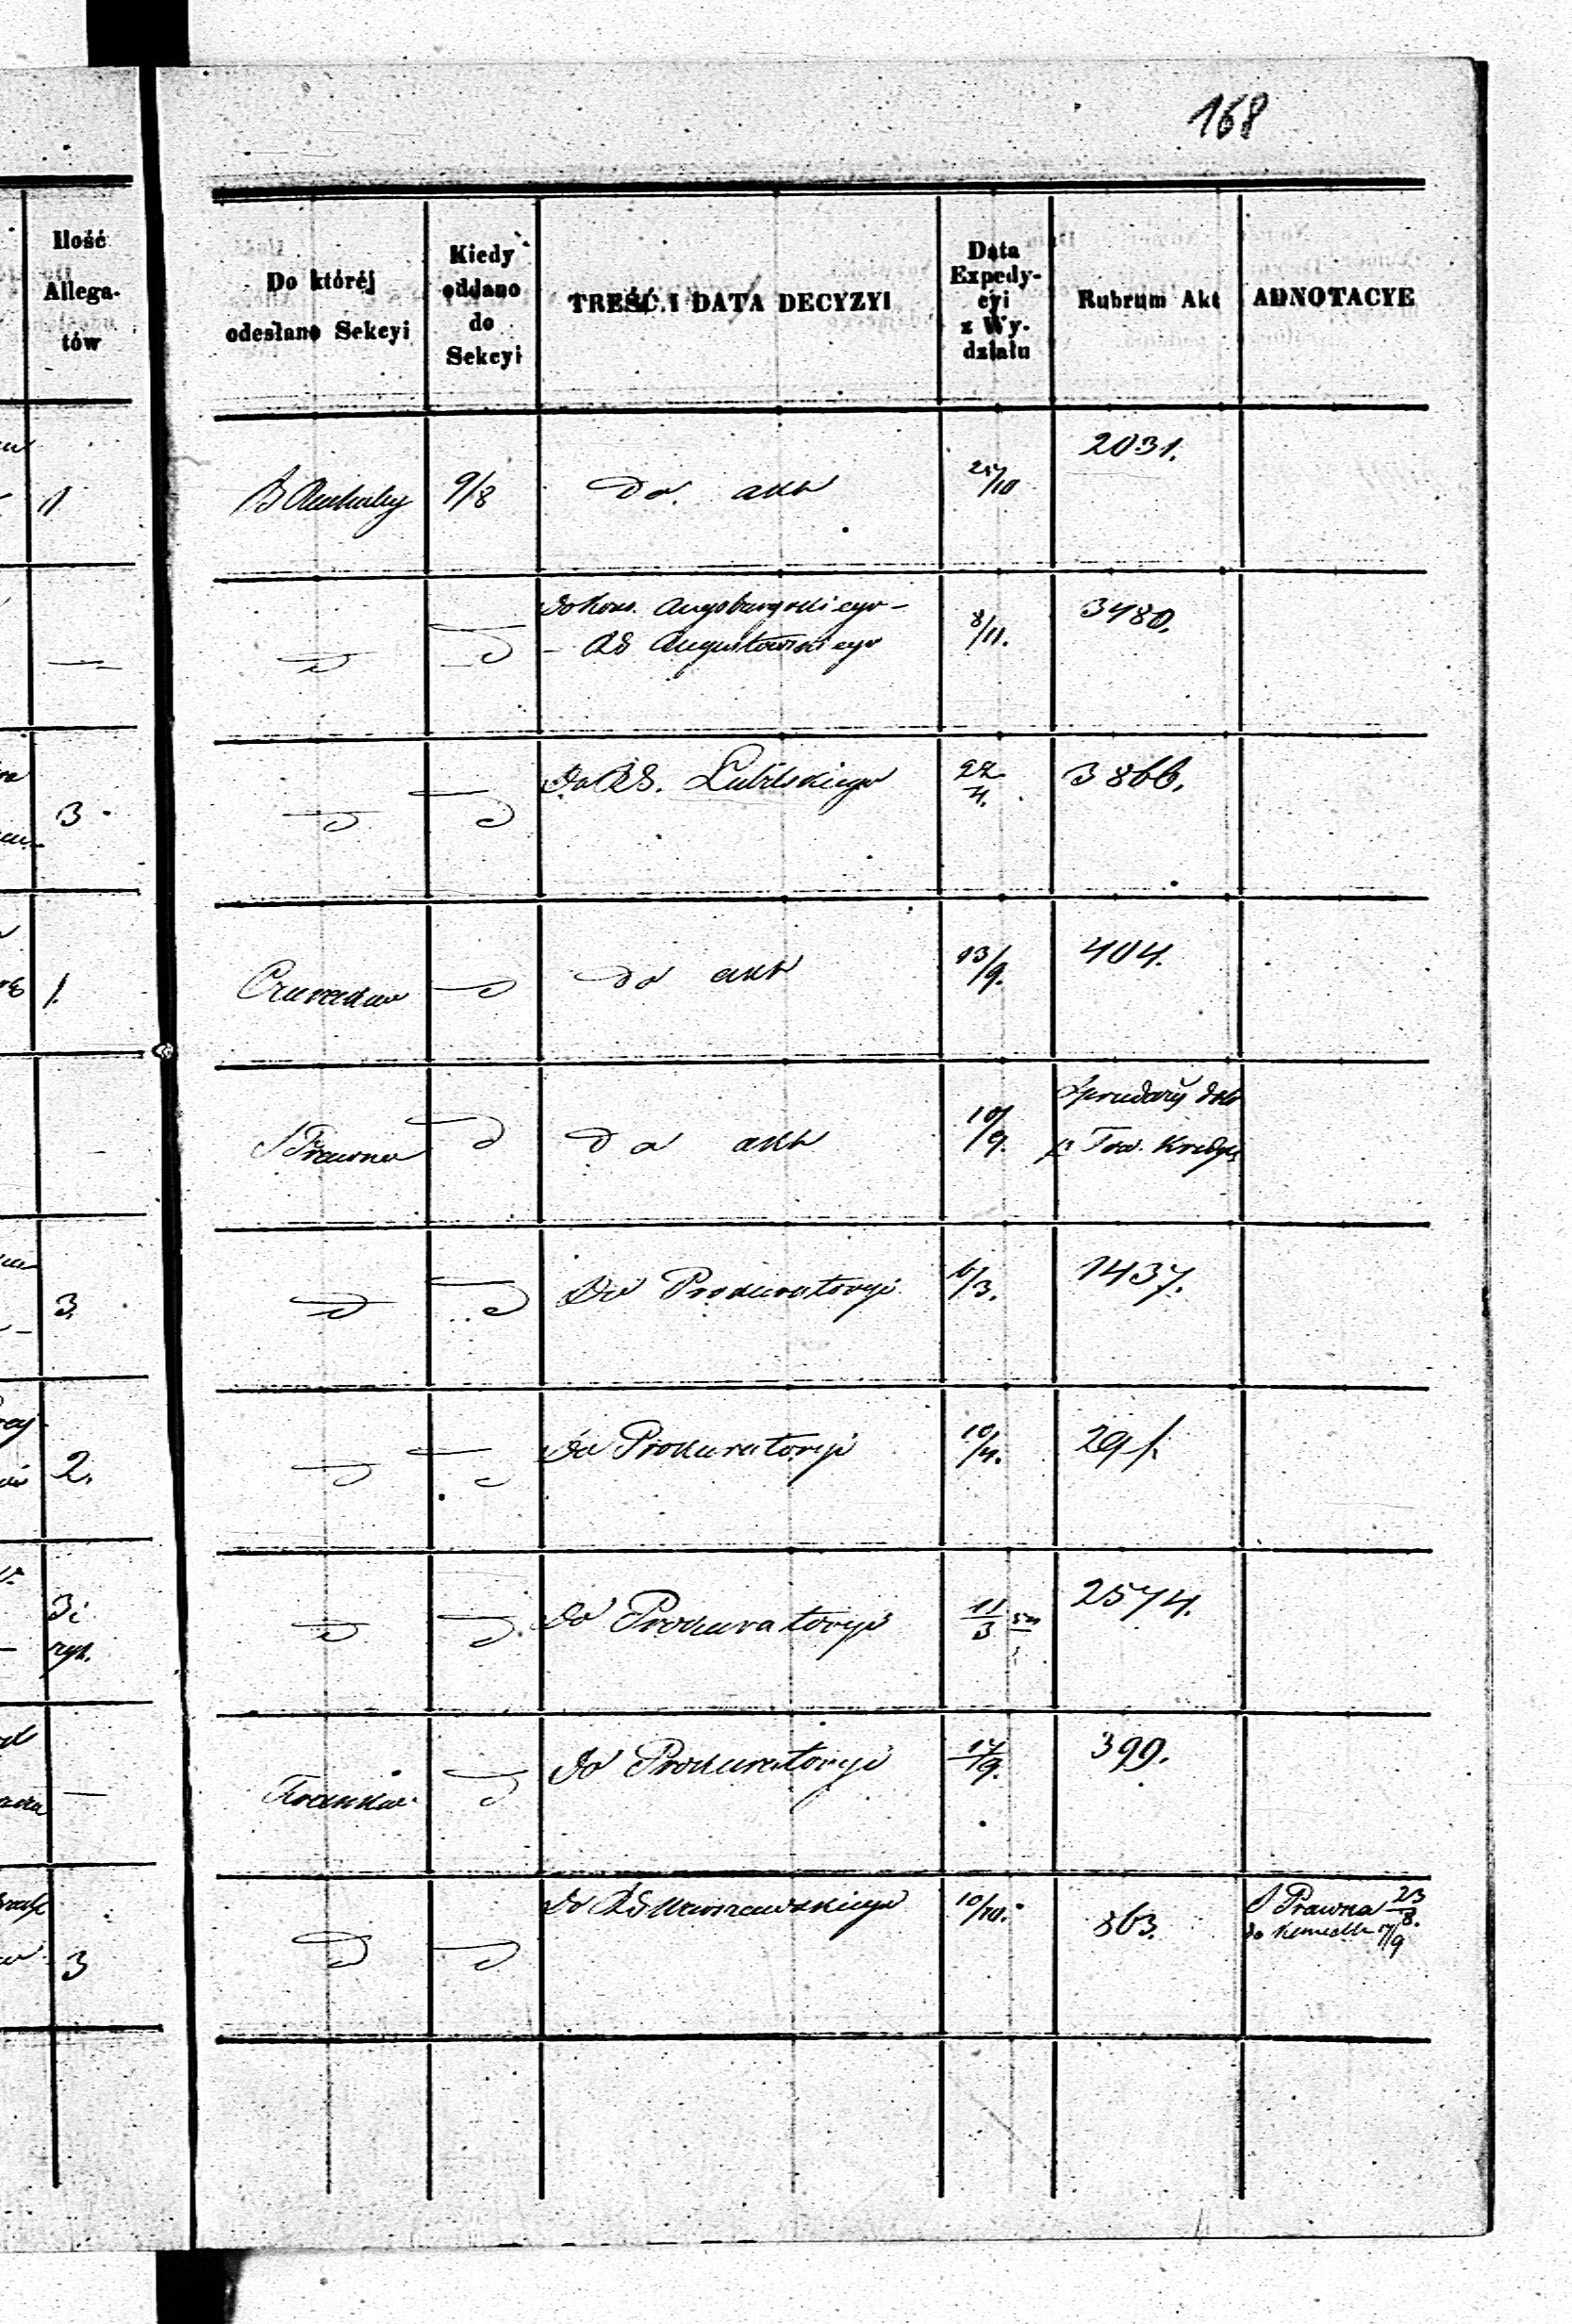 168
Ilość
Allega-
tów
Do któréj
odesłano Sekcyi
Kiedy
oddano
do
Sekcyi
TREŚĆ I DATA DECYZYI
Data
Expedy-
cyi
z Wy-
działu
Rubrum Akt
ADNOTACYE
2031.
1
9/8
do akt
/10
do Kons. Augsburgskiego –
8/11.
3480.
– RG Augustowskiego
3
Do RG. Lubelskiego
4.
3866.
1.
do akt
13/9.
404.
S Prawna
do akt
10/9.
Sprzedaży dóbr
p. Tow. Kredyt
3.
Do Prokuratoryi
6/3.
1437.
2.
Do Prokuratoryi
10/4.
291.
3 i
rys.
Do Prokuratoryi
11/3
2574.
Do Prokuratoryi
17/9.
399.
3
Do RG Warszawskiego
10/10.
863.
S Prawna 23/8.
do 17/9